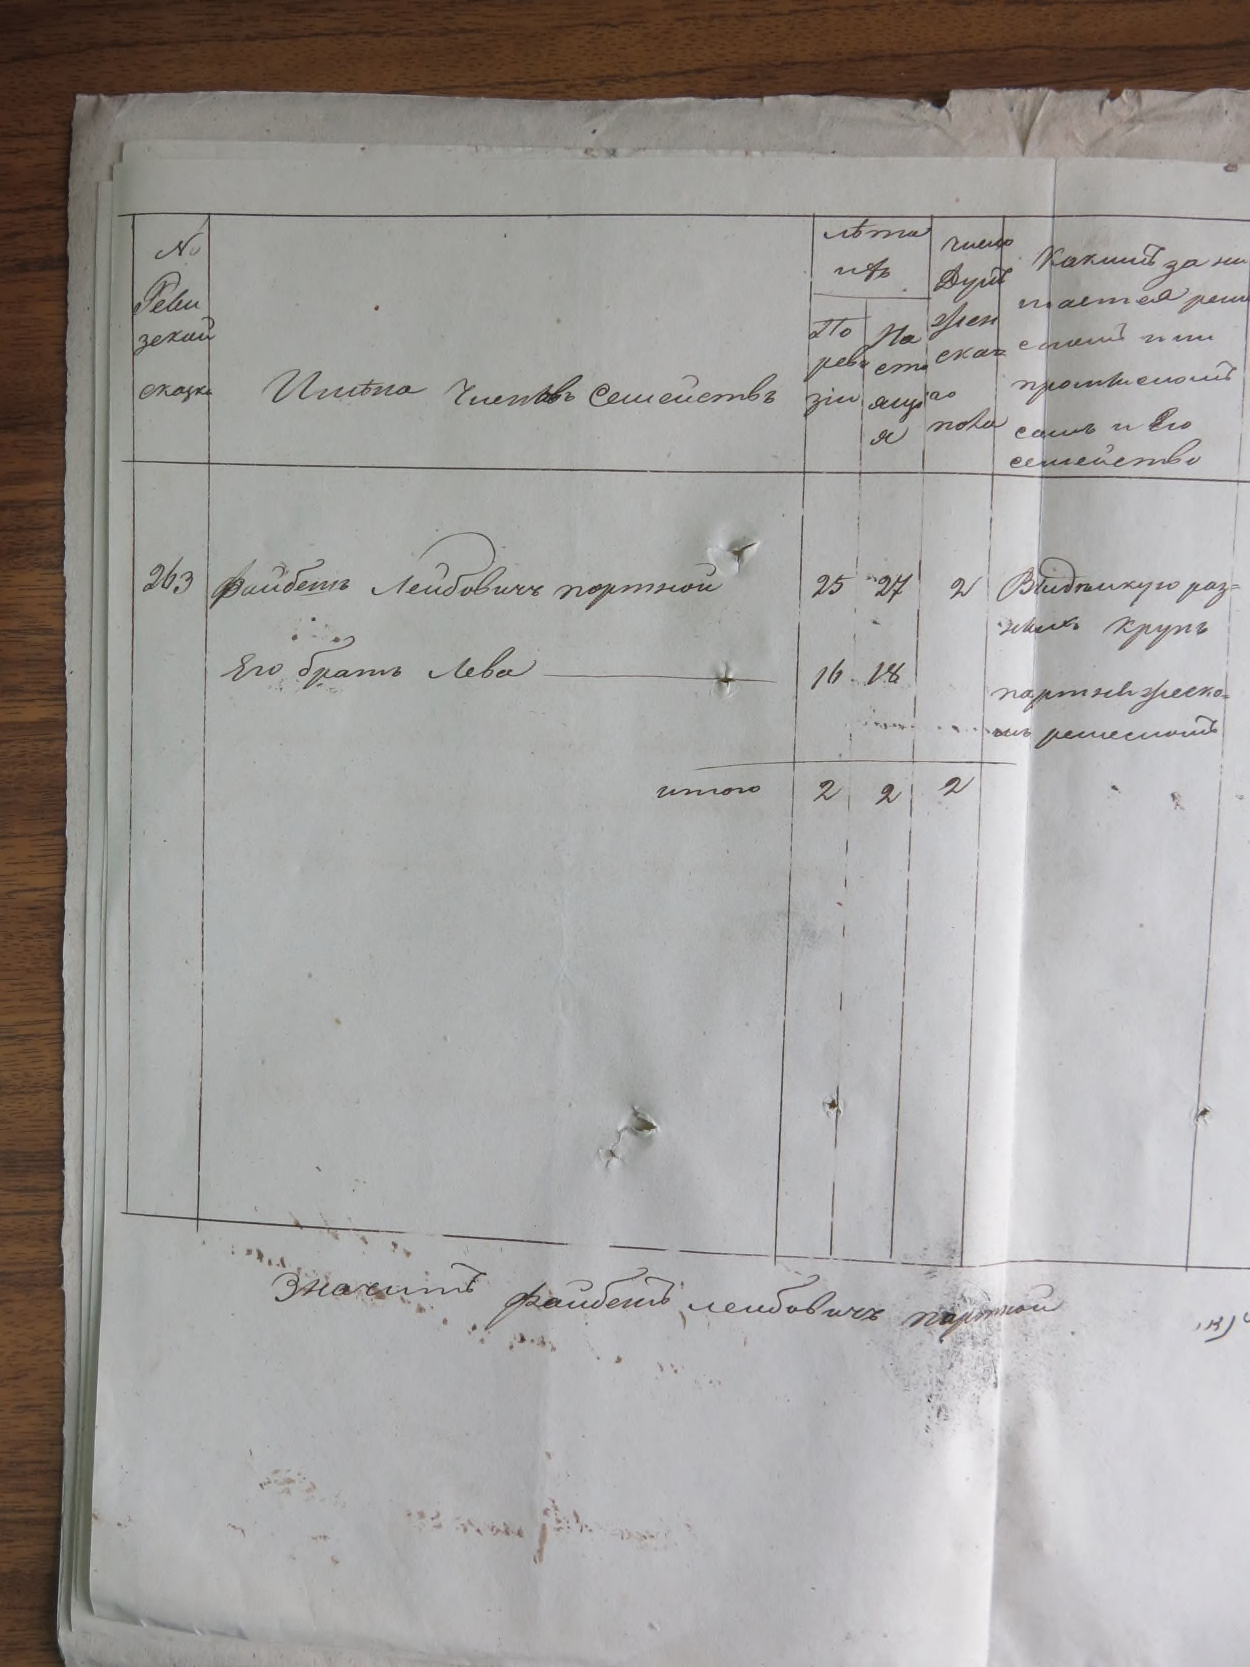 №
Реви
зской
сказки
Имѣна Членовъ Семействъ
лѣта
ихъ
По
реви
зіи
На
сто
ящі
я
число
Душъ
жен
скаг
го
пола
Какимъ за ни
мается реме
сломъ или
промысломъ
самъ и Его
семейство
263 Файбешъ Лейбовичъ портной 25 27 2 Выдѣлкую раз=
ныхъ крупъ
Его братъ Лева 16 18
портняжеско-
мъ ремесломъ
итого 2 2 2
Значитъ файбешъ лейбовичъ портной